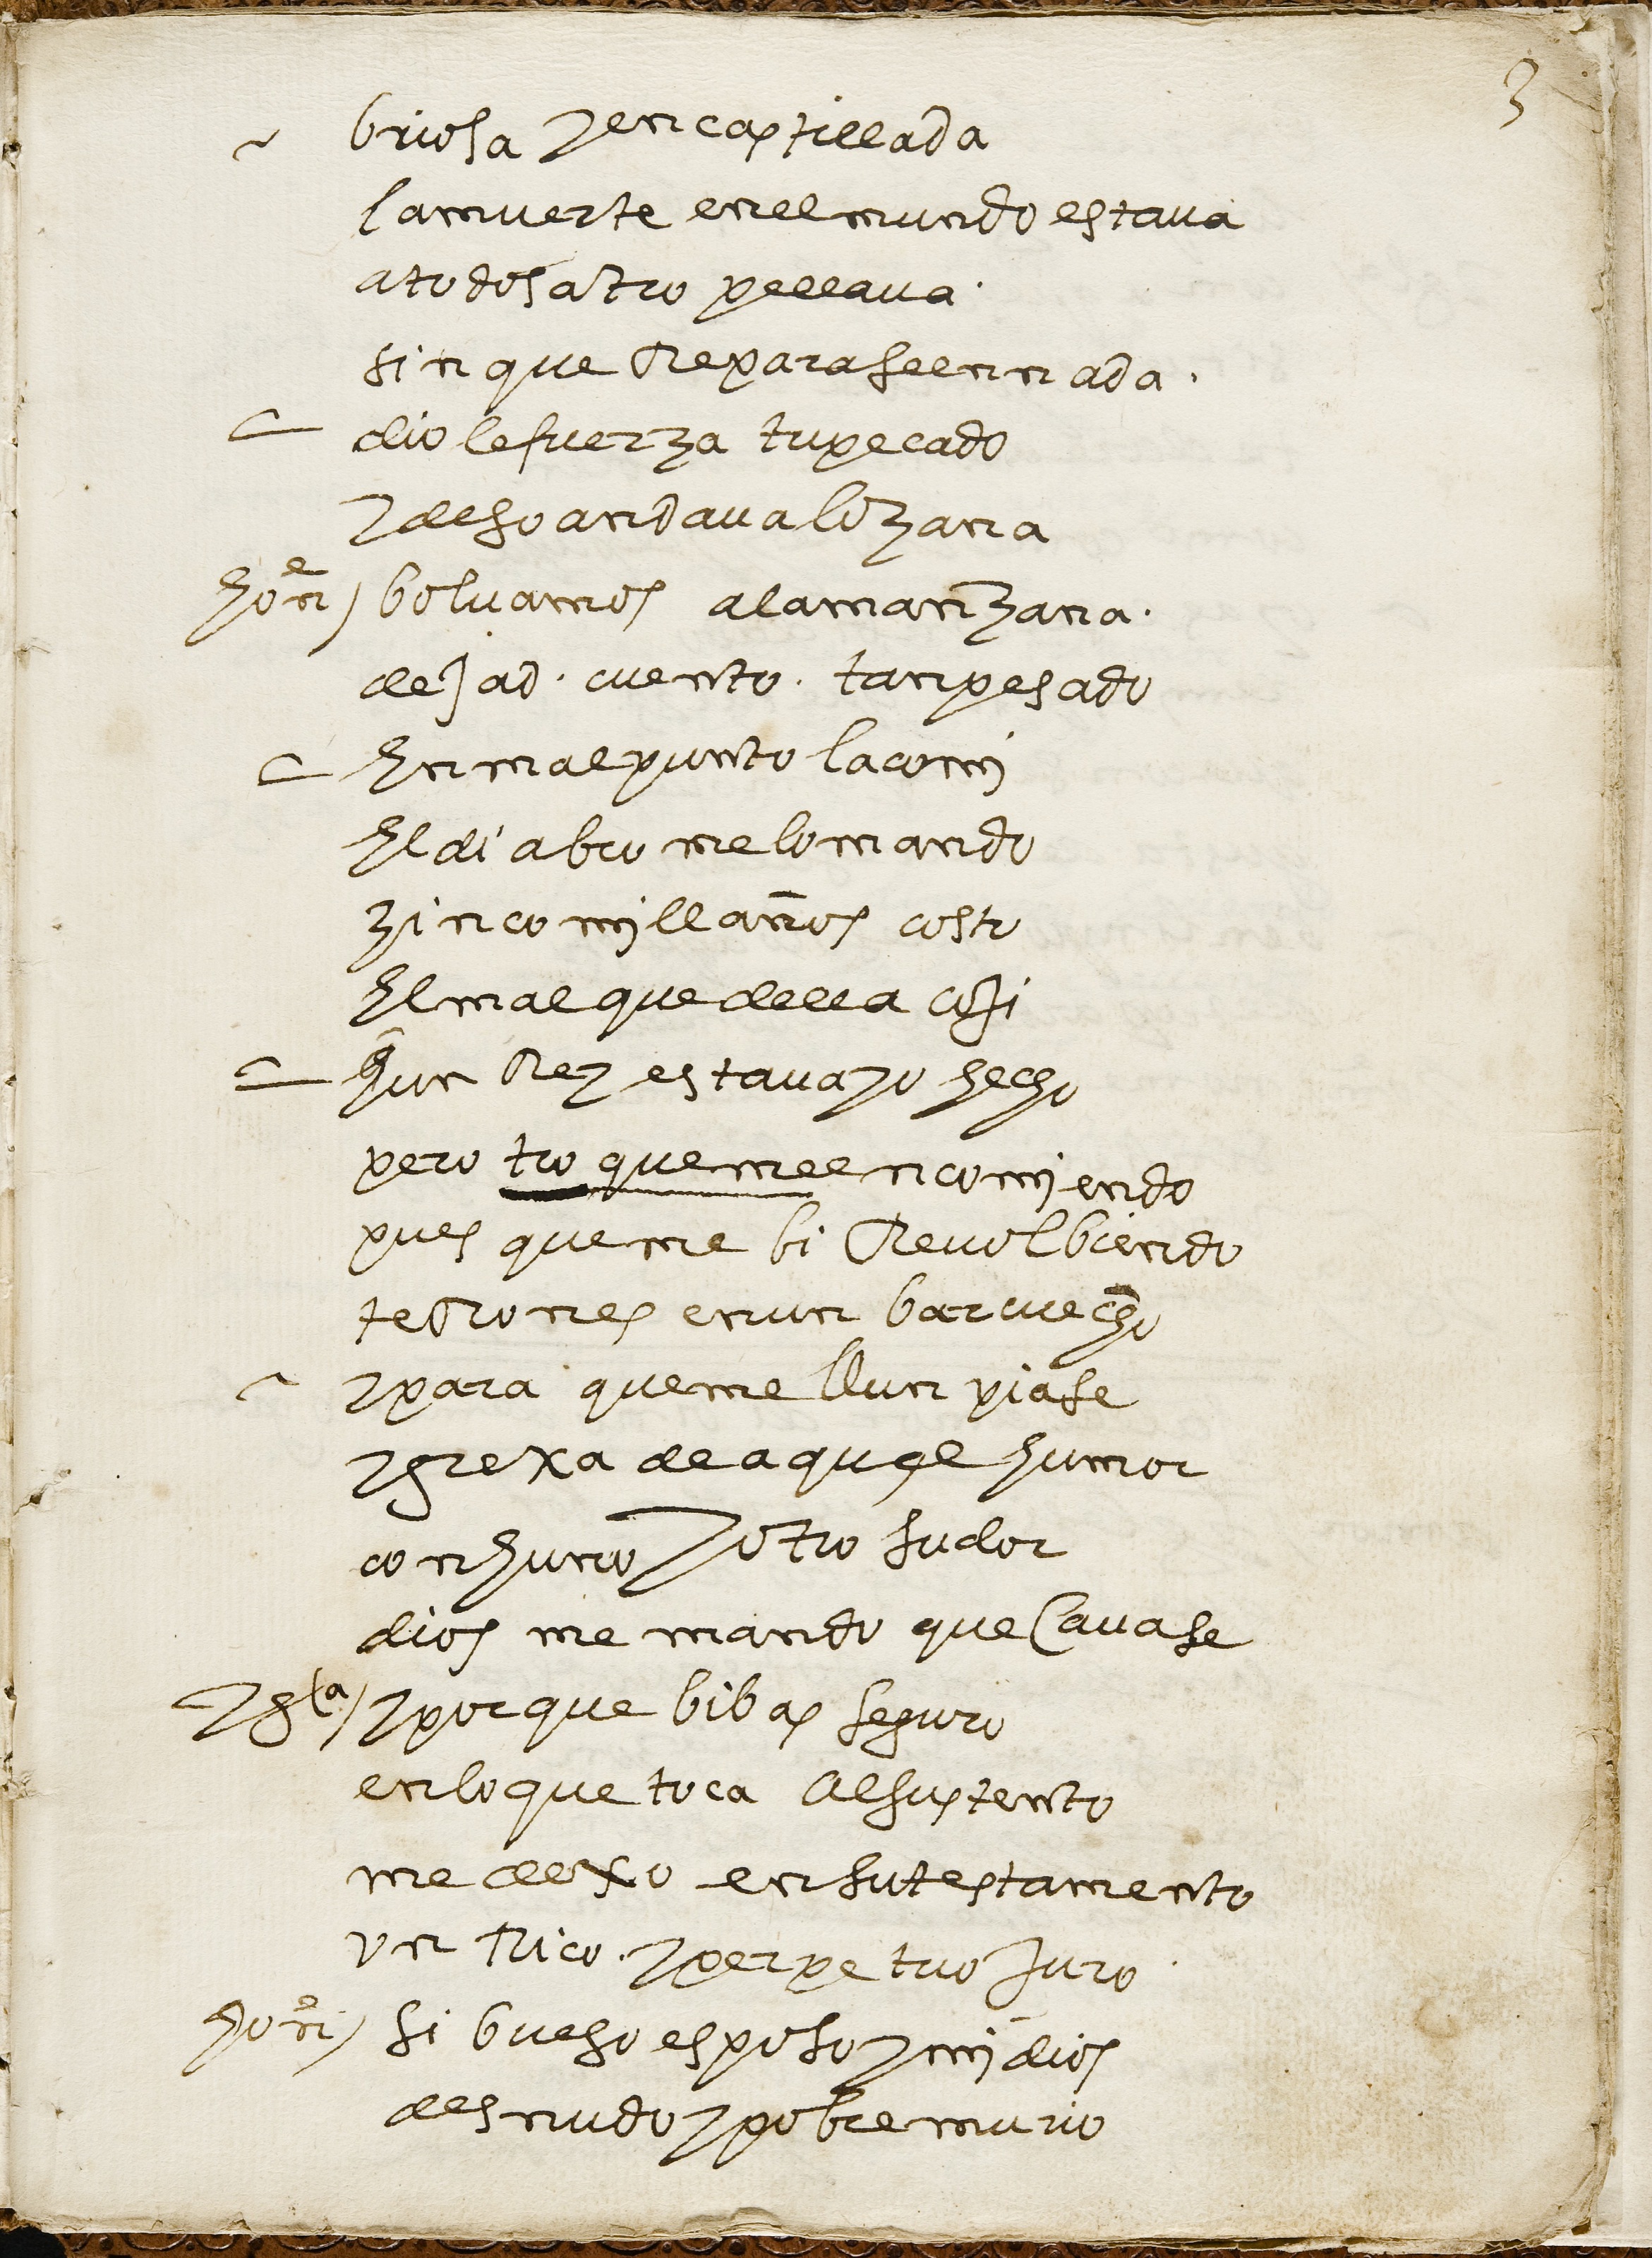 3
briosa y encastillada
la muerte en el mundo estaua
a todos atropellaua.
sin que Reparase en nada.
diole fuerza tu pecado
y deso andaua lozana
hon^e) boluamos a la manzana.
dejad. cuento. tan pesado
En mal punto la comi
El diabro me lo mando
zinco mill años costo
El mal que della coJi
hun Rey estaua yo hecho
pero troquemeencomiendo
pues que me bi Reuolbiendo
teRones en un baruecho
y para que me llunpiase
y grexa de aquel humor
con huno y otro sudor
dios me mando que Cauase
ygl^a) y porque bibas seguro
en lo que toca Al sustento
me dexo en su testamento
vn Rico. y perpetuo Juro
hon^e) si bueso esposo y mi dios
desnudo y pobre murio